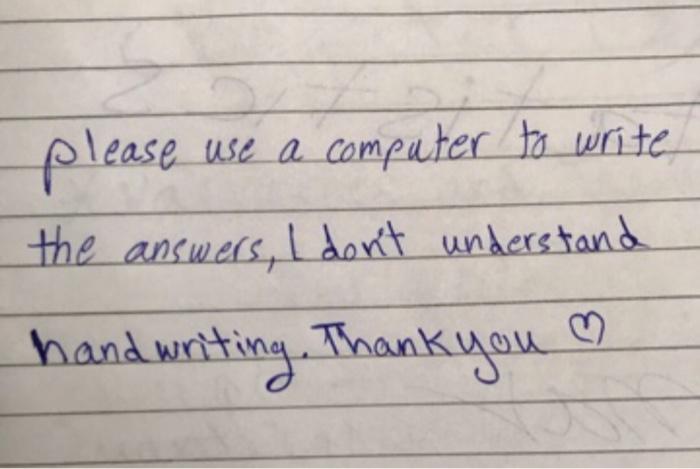 please use a computer to write
the answers, I don't understand
handwriting. Thank you ♡